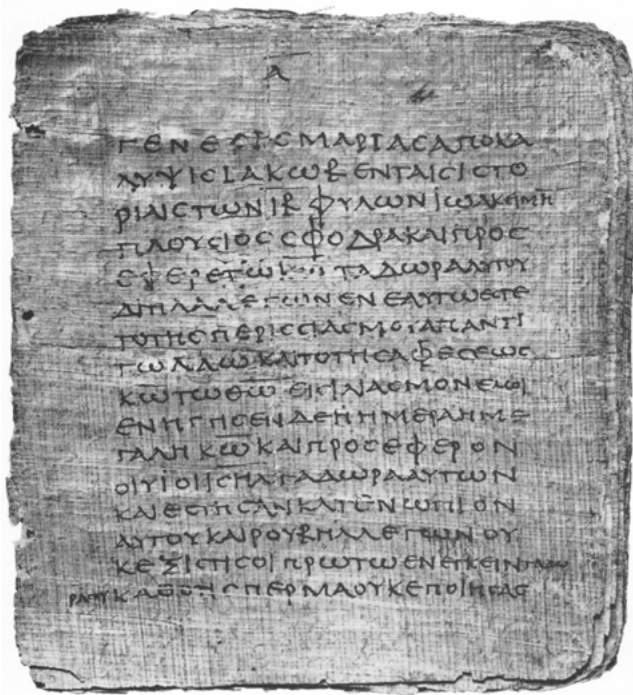 Α
ΓΕΝΕCΙCΜΑΡΙΑCΑΠΟΚΑ
ΛΥΨΙCΙΑΚΩΒΕΝΤΑΙCΙCΤΟ
ΡΙΑΙCΤΩΝΙΒΦΥΛΩΝΙΩΑΚΕΙΜΗΝ
ΠΛΟΥCΙΟCCΦΟΔΡΑΚΑΙΠΡΟC
ΕΦΕΡΕΤΩΚΩΤΑΔΩΡΑΑΥΤΟΥ
ΔΙΠΛΑΛΕΓΩΝΕΝΕΑΥΤΩΕCΤΕ
ΤΟΤΗCΠΕΡΙCCΙΑCΜΟΥΑΠΑΝΤΙ
ΤΩΛΑΩΚΑΙΤΟΤΗCΑΦΕCΕΩC
ΚΩΤΩΘΩΕΙCΙΛΑCΜΟΝΕΜΟΙ
ΕΝΗΓΓΙCΕΝΔΕΗΗΜΕΡΑΗΜΕ
ΓΑΛΗΚΩΚΑΙΠΡΟCΕΦΕΡΟΝ
ΟΙΥΙΟΙΙCΗΛΤΑΔΩΡΑΑΥΤΩΝ
ΚΑΙΕCΤΗCΑΝΚΑΤΕΝΩΠΙΟΝ
ΑΥΤΟΥΚΑΙΡΟΥΒΗΛΛΕΓΩΝΟΥ
ΚΕΞΙCΤΙCΟΙΠΡΩΤΩΕΝΕΓΚΕΙΝ
ΚΑΘΟΤΙCΠΕΡΜΑΟΥΚΕΠΟΙΗCΑC